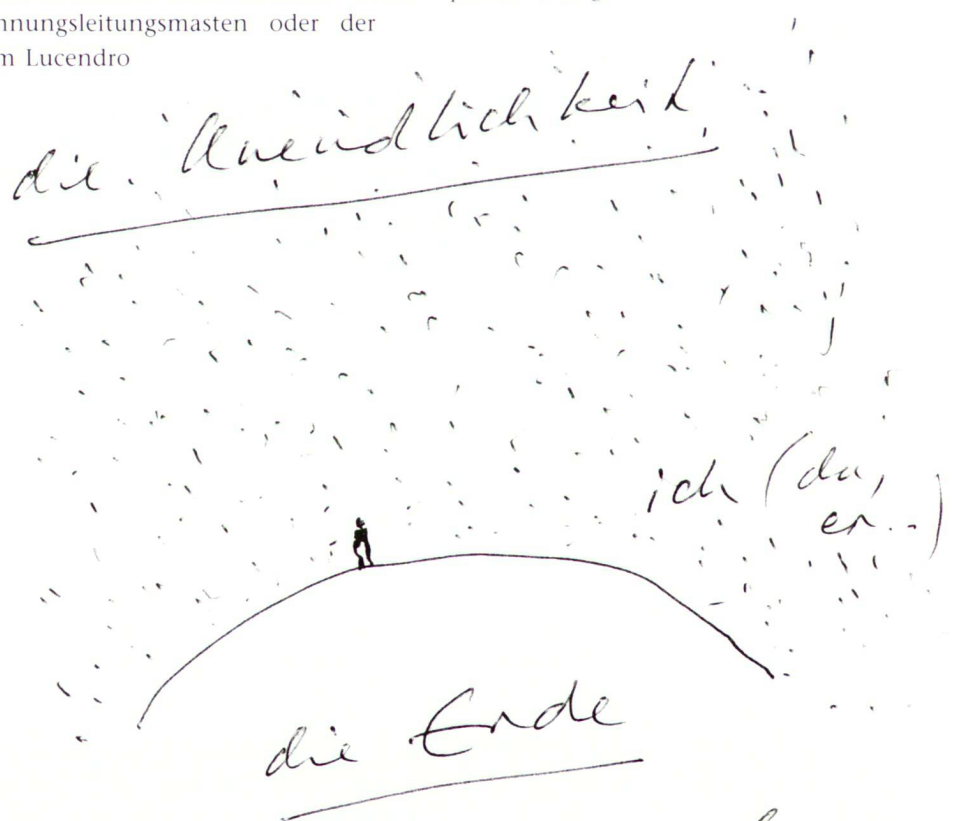 nnungsleitungsmasten oder der
m Lucendro
die Unendlichkeit
ich (du,
er...)
die Erde